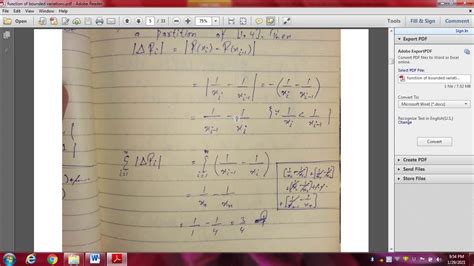 function of bounded variations.pdf - Adobe Reader
File Edit View Window Help
5 / 5
75%
Tools Fill & Sign Comment
Sign In
a partition of [1,4], then
|ΔPi| = |P(xi) - P(xi-1)|
= |1/xi - 1/xi-1| = -(1/xi - 1/xi-1)
= 1/xi-1 - 1/xi {∵ 1/xi < 1/xi-1}
n∑i=1 |ΔPi| = n∑i=1 (1/xi-1 - 1/xi)
= 1/x0 - 1/xn
= 1/1 - 1/4 = 3/4
Export PDF
Adobe ExportPDF
Convert PDF files to Word or Excel online.
Select PDF File:
function of bounded variations.pdf
1 file / 7.02 MB
Convert To:
Microsoft Word (*.docx)
Recognize Text in English(U.S.)
Change
Convert
Create PDF
Edit PDF
Combine PDF
Send Files
Store Files
9:54 PM
1/29/2021